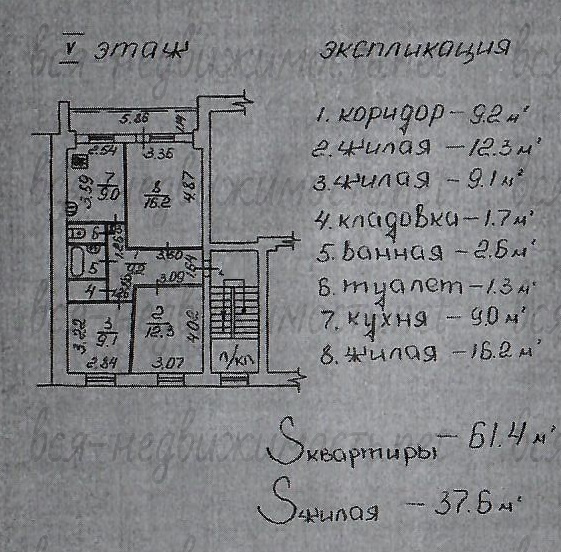 V этаж
экспликация
1. коридор – 9.2 м²
2. жилая – 12.3 м²
3. жилая – 9.1 м²
4. кладовка – 1.7 м²
5. ванная – 2.6 м²
6. туалет – 1.3 м²
7. кухня – 9.0 м²
8. жилая – 16.2 м²
5.86
2.54
3.36
3.59
7
9.0
8
16.2
4.87
6
5
3.60
3.09
1.64
4
3.22
3
9.1
2
12.3
4.02
2.84
3.07
л/кл
Sквартиры – 61.4 м²
Sжилая – 37.6 м²
вся-недвижимость